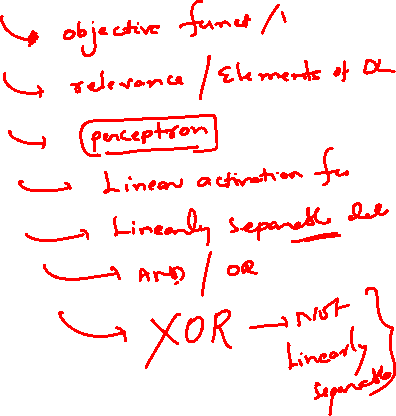 objective funct /
relevance / Elements of DL
perceptron
Linear activation fu
Linearly separable
AND / OR
XOR → Not
Linearly
Separable